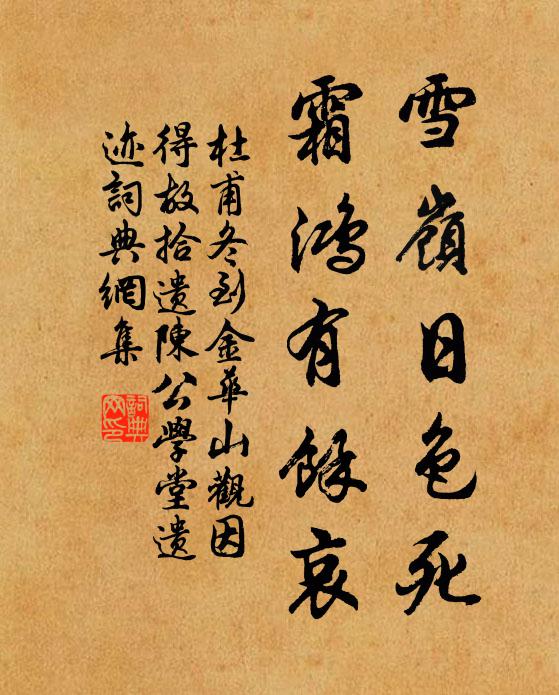 雪嶺日色死
霜鴻有餘哀
杜甫冬到金華山觀因
得故拾遺陳公學堂遺
迹詞典網集
詞典
网印